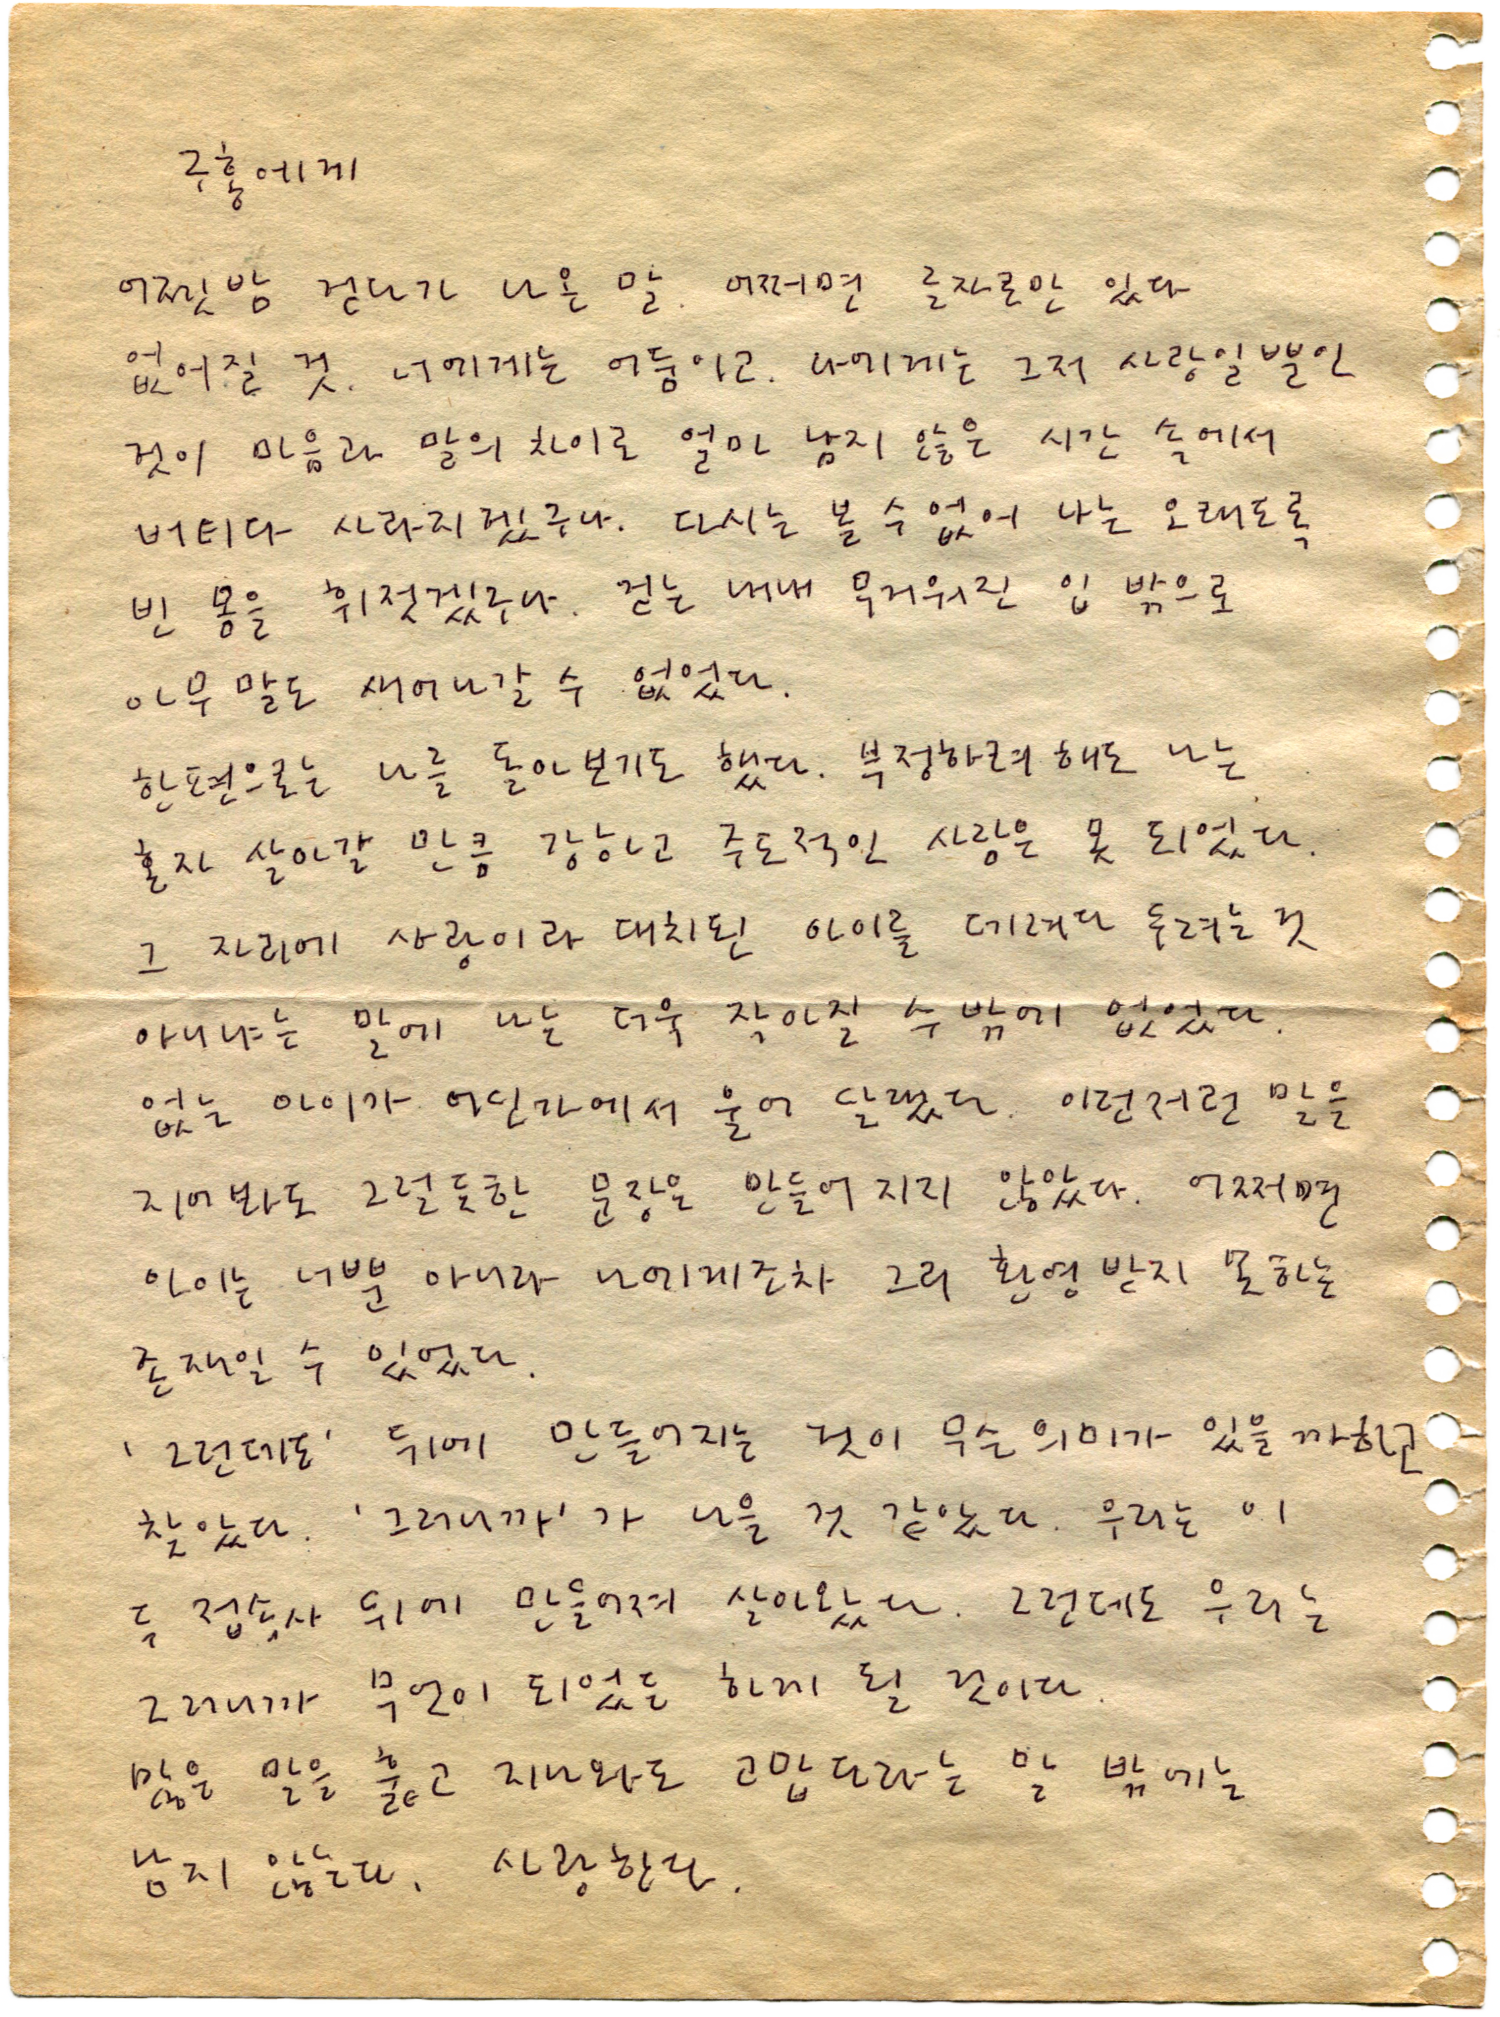 주홍에게
어젯밤 걷다가 나온 말. 어쩌면 글자로만 있다
없어질 것. 너에게는 어둠이고. 나에게는 그저 사랑일 뿐인
것이 마음과 말의 차이로 얼마 남지 않은 시간 속에서
버티다 사라지겠구나. 다시는 볼 수 없어 나는 오래도록
빈 몸을 휘젓겠구나. 걷는 내내 무거워진 입 밖으로
아무 말도 새어나갈 수 없었다.
한편으로는 나를 돌아보기도 했다. 부정하려 해도 나는
혼자 살아갈 만큼 강하고 주도적인 사람은 못 되었다.
그 자리에 사랑이라 대치된 아이를 데려다 두려는 것
아니냐는 말에 나는 더욱 작아질 수 밖에 없었다.
없는 아이가 어딘가에서 울어 달랬다. 이런저런 말을
지어봐도 그럴듯한 문장은 만들어지지 않았다. 어쩌면
아이는 너뿐 아니라 나에게조차 그리 환영받지 못하는
존재일 수 있었다.
'그런데도' 뒤에 만들어지는 것이 무슨 의미가 있을까하고
찾았다. '그러니까'가 나을 것 같았다. 우리는 이
두 접속사 뒤에 만들어져 살아왔다. 그런데도 우리는
그러니까 무언이 되었든 하게 될 것이다.
많은 말을 훑고 지나와도 고맙다라는 말 밖에는
남지 않는다. 사랑한다.